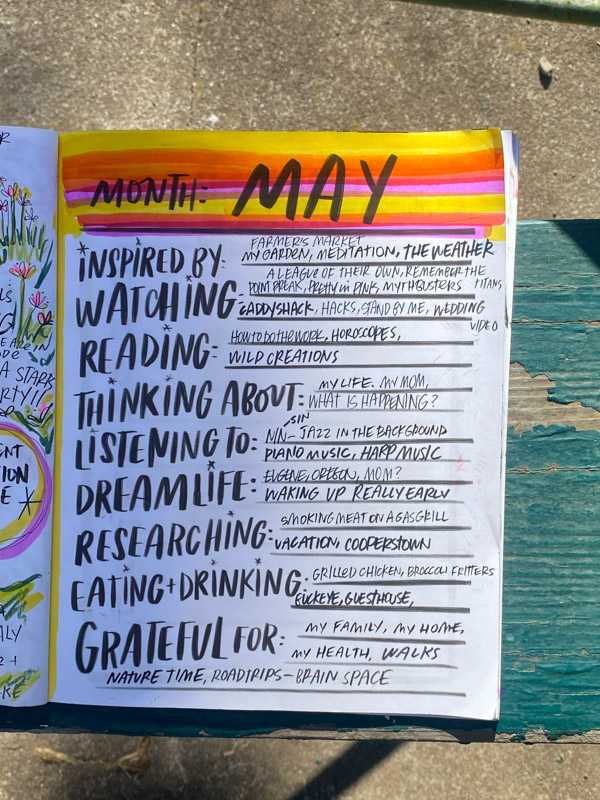 MONTH: MAY
INSPIRED BY: FARMER'S MARKET
MY GARDEN, MEDITATION, THE WEATHER
WATCHING: A LEAGUE OF THEIR OWN, REMEMBER THE TITANS
POINT BREAK, PRETTY IN PINK, MYTHBUSTERS
CADDYSHACK, HACKS, STAND BY ME, WEDDING VIDEO
READING: HOW TO DO THE WORK, HOROSCOPES,
WILD CREATIONS
THINKING ABOUT: MY LIFE. MY MOM,
WHAT IS HAPPENING?
LISTENING TO: JAZZ IN THE BACKGROUND
PIANO MUSIC, HARP MUSIC
DREAM LIFE: EUGENE, OREGON, MOM?
WAKING UP REALLY EARLY
RESEARCHING: SMOKING MEAT ON A GAS GRILL
VACATION, COOPERSTOWN
EATING + DRINKING: GRILLED CHICKEN, BROCCOLI FRITTERS
BUCKEYE, GUESTHOUSE,
GRATEFUL FOR: MY FAMILY, MY HOME,
MY HEALTH, WALKS
NATURE TIME, ROADTRIPS - BRAIN SPACE